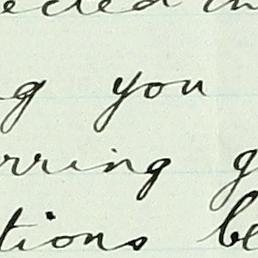 ected in
g you
rring g
tions be